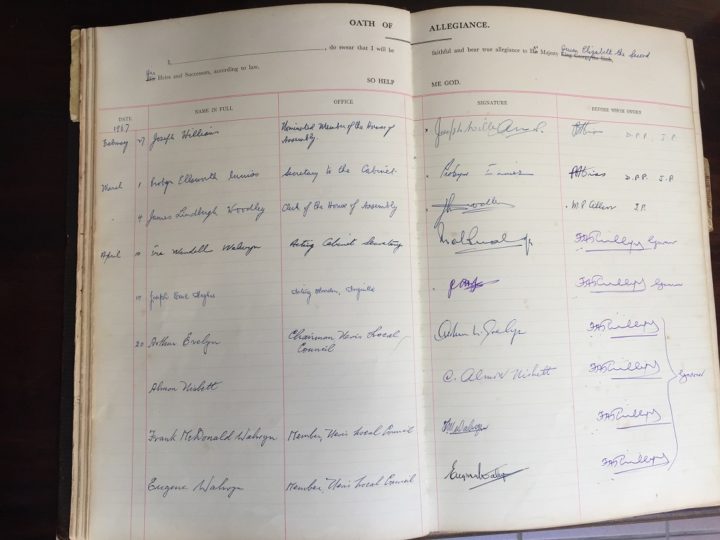 OATH OF ALLEGIANCE.
I, , do swear that I will be faithful and bear true allegiance to Her Majesty Queen Elizabeth the Second King George the Sixth,
Her Heirs and Successors, according to law.
SO HELP ME GOD.
DATE NAME IN FULL OFFICE SIGNATURE BEFORE WHOM SWORN
1967
February 27 Joseph William Nominated Member of the House of Assembly. D.P.P., J.P.
March 1 Probyn Ellsworth Inniss Secretary to the Cabinet. Probyn Inniss D.P.P. J.P.
4 James Lindbergh Woodley Clerk of the House of Assembly M.P. Allen J.P.
April 10 Ira Wendell Walwyn Acting Cabinet Secretary F.A. Phillips Governor
Joseph F.A. Phillips Governor
20 Arthur Evelyn Chairman Nevis Local Council Arthur L. Evelyn F.A. Phillips
Almon Nisbett C. Almon Nisbett F.A. Phillips Governor
Frank McDonald Walwyn Member, Nevis Local Council F.M. Walwyn F.A. Phillips
Eugene Walwyn Member, Nevis Local Council Eugene Walwyn F.A. Phillips